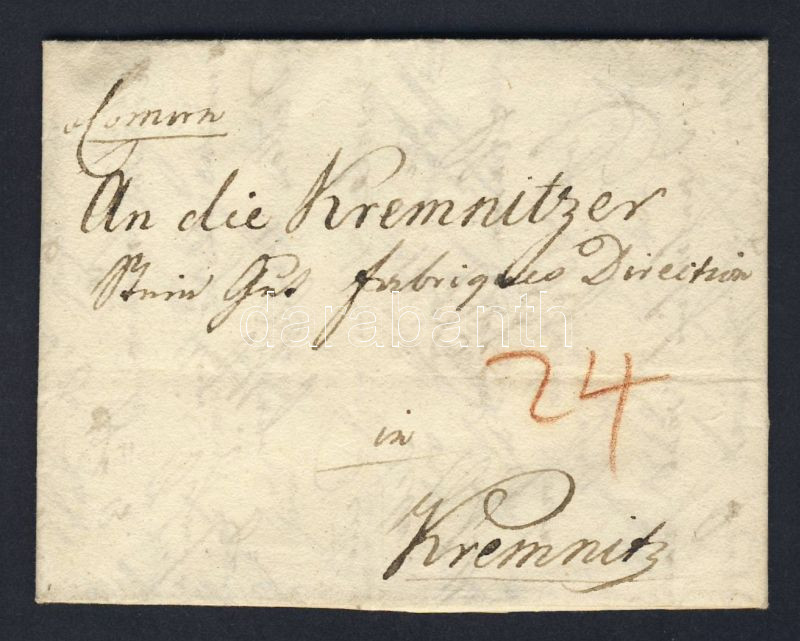 Comorn
An die Kremnitzer
Stein Gut fabriques Direction
darabanth
24
in
Kremnitz